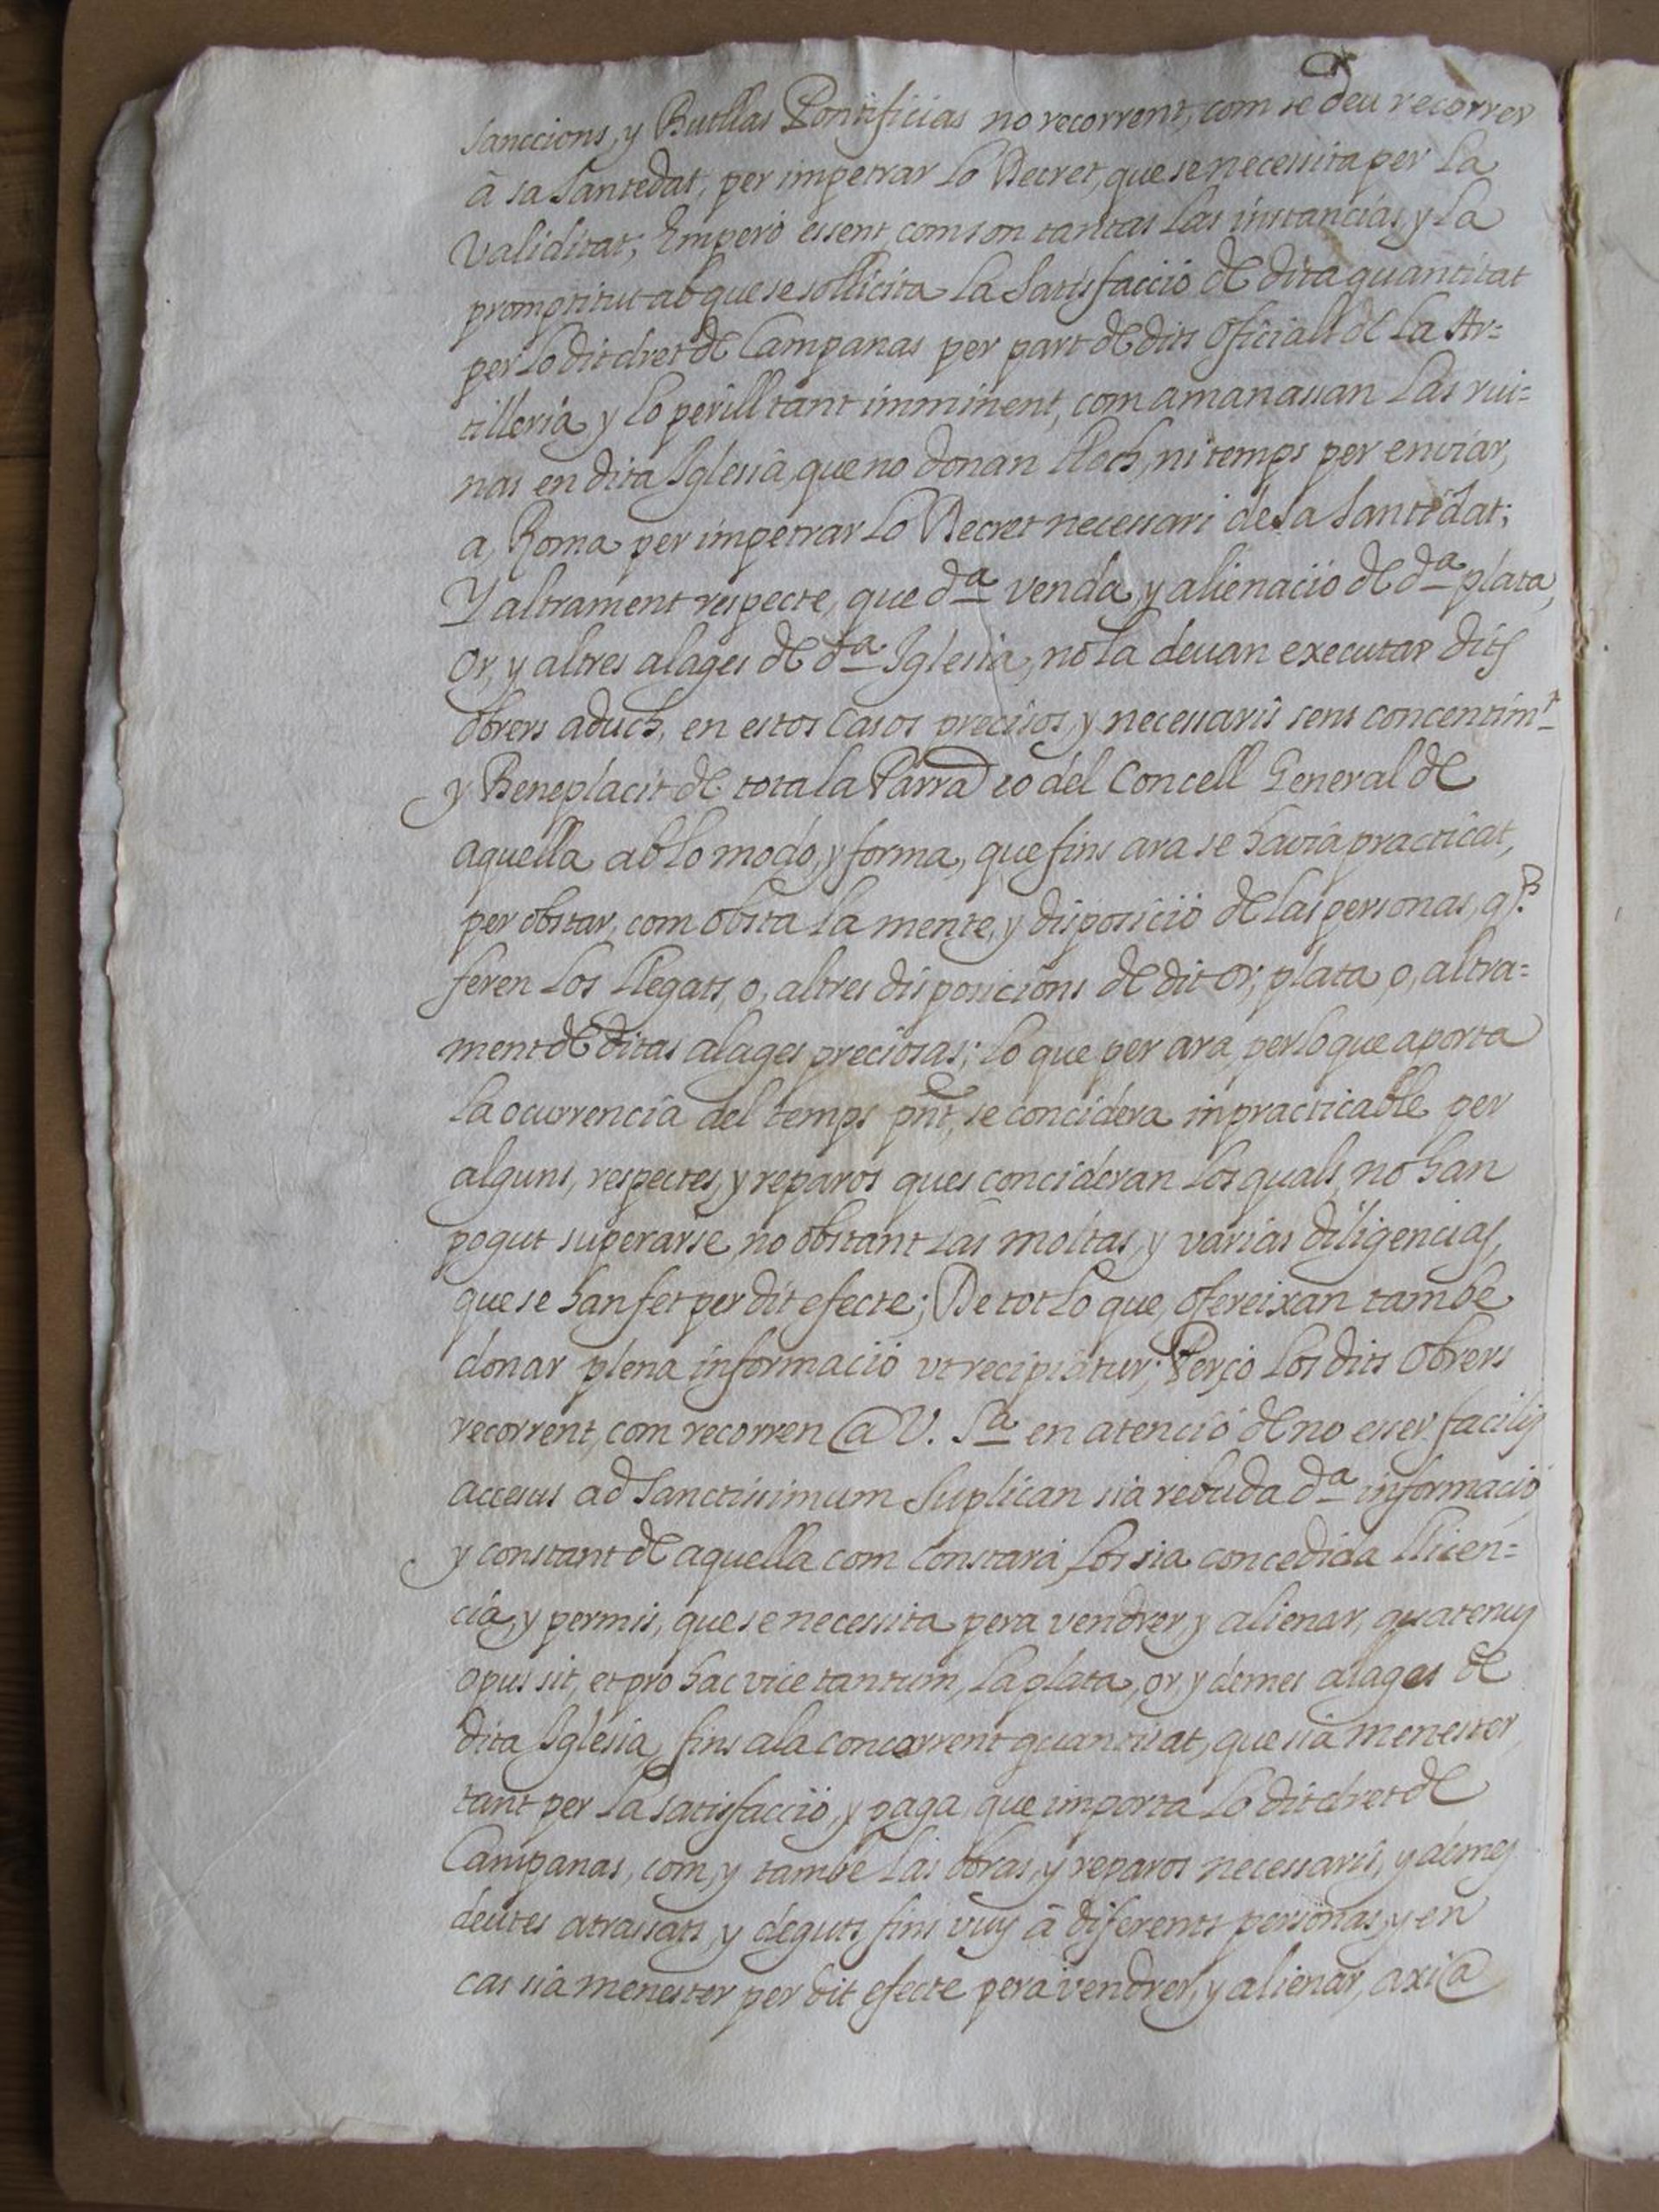 sanccions, y Butllas Pontificias no recorrent, com se deu recorrer
â sa Santedat, per impetrar lo Decret, que se necessita per la
Validitat; Empero essent com son tantas las instancias, y la
promptitut ab que se sollicita la Satisfacció de dita quantitat
per lo dit dret de Campanas per part de dits Oficials de la Ar=
tilleria, y lo perill tant imminent, com amanassan las rui=
nas en dita Iglesia, que no donan lloch, ni temps per enviar,
a, Roma per impetrar lo Decret necessari de sa Santedat;
Y altrament respecte, que dª venda, y alienació de dª plata,
Or, y altres alages de dª Iglesia, no la devan executar dits
Obrers aduch, en estos Casos precisos, y necessaris sens concentimt
y Beneplacit de tota la Parra eo del Concell General de
aquella ab lo modo, y forma, que fins ara se havia practicat,
per obstar, com obsta la mente, y disposició de las personas, q.
feren los llegats, o, altres disposicions de dit Or, plata, o, altra=
ment de ditas alages preciosas; lo que per ara, per lo que aporta
la ocurrencia del temps pnt, se concidera inpracticable per
alguns, respectes, y reparos ques concideran los quals, no han
pogut superarse, no obstant las moltas, y varias diligencias,
que se han fet per dit efecte; De tot lo que, ofereixan tambe
donar plena informació ut recipiatur; Perço los dits Obrers
recorrent, com recorren @ V. Sª en atenció de no esser facilis
accesus ad Sanctissimum Suplican sia rebuda dª informació
y constant de aquella com constarà, los sia concedida llicen=
cia, y permis, que se necessita pera vendrer, y alienar, quatenus
opus sit, et pro hac vice tantum, la plata, or, y demes alages de
dita Iglesia, fins a la concorrent quantitat, que sia menester,
tant per la satisfacció, y paga, que importa lo dit dret de
Campanas, com, y tambe las obras, y reparos necessaris, y demes
deutes atrassats, y deguts fins vuy â diferents personas, y en
cas sia menester per dit efecte pera vendrer, y alienar, axi @